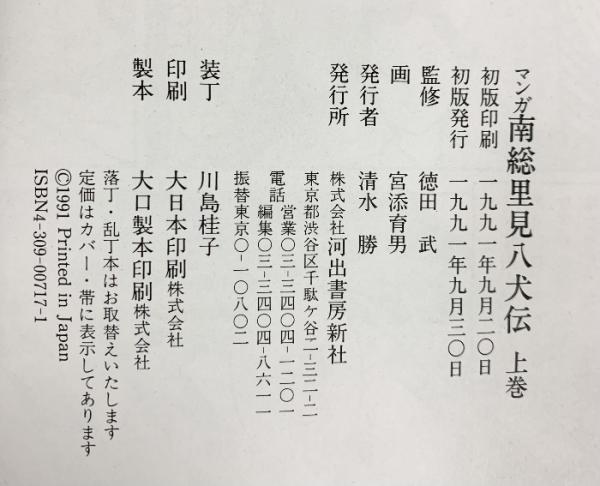 マンガ南総里見八犬伝 上巻
初版印刷 一九九一年九月二〇日
初版発行 一九九一年九月三〇日
監修 徳田 武
画 宮添育男
発行者 清水 勝
発行所 株式会社河出書房新社
東京都渋谷区千駄ケ谷二-三二-二
電話 営業〇三-三四〇四-一二〇一
編集〇三-三四〇四-八六一一
振替東京〇-一〇八〇二
装丁 川島桂子
印刷 大日本印刷株式会社
製本 大口製本印刷株式会社
落丁・乱丁本はお取替えいたします
定価はカバー・帯に表示してあります
©1991 Printed in Japan
ISBN4-309-00717-1